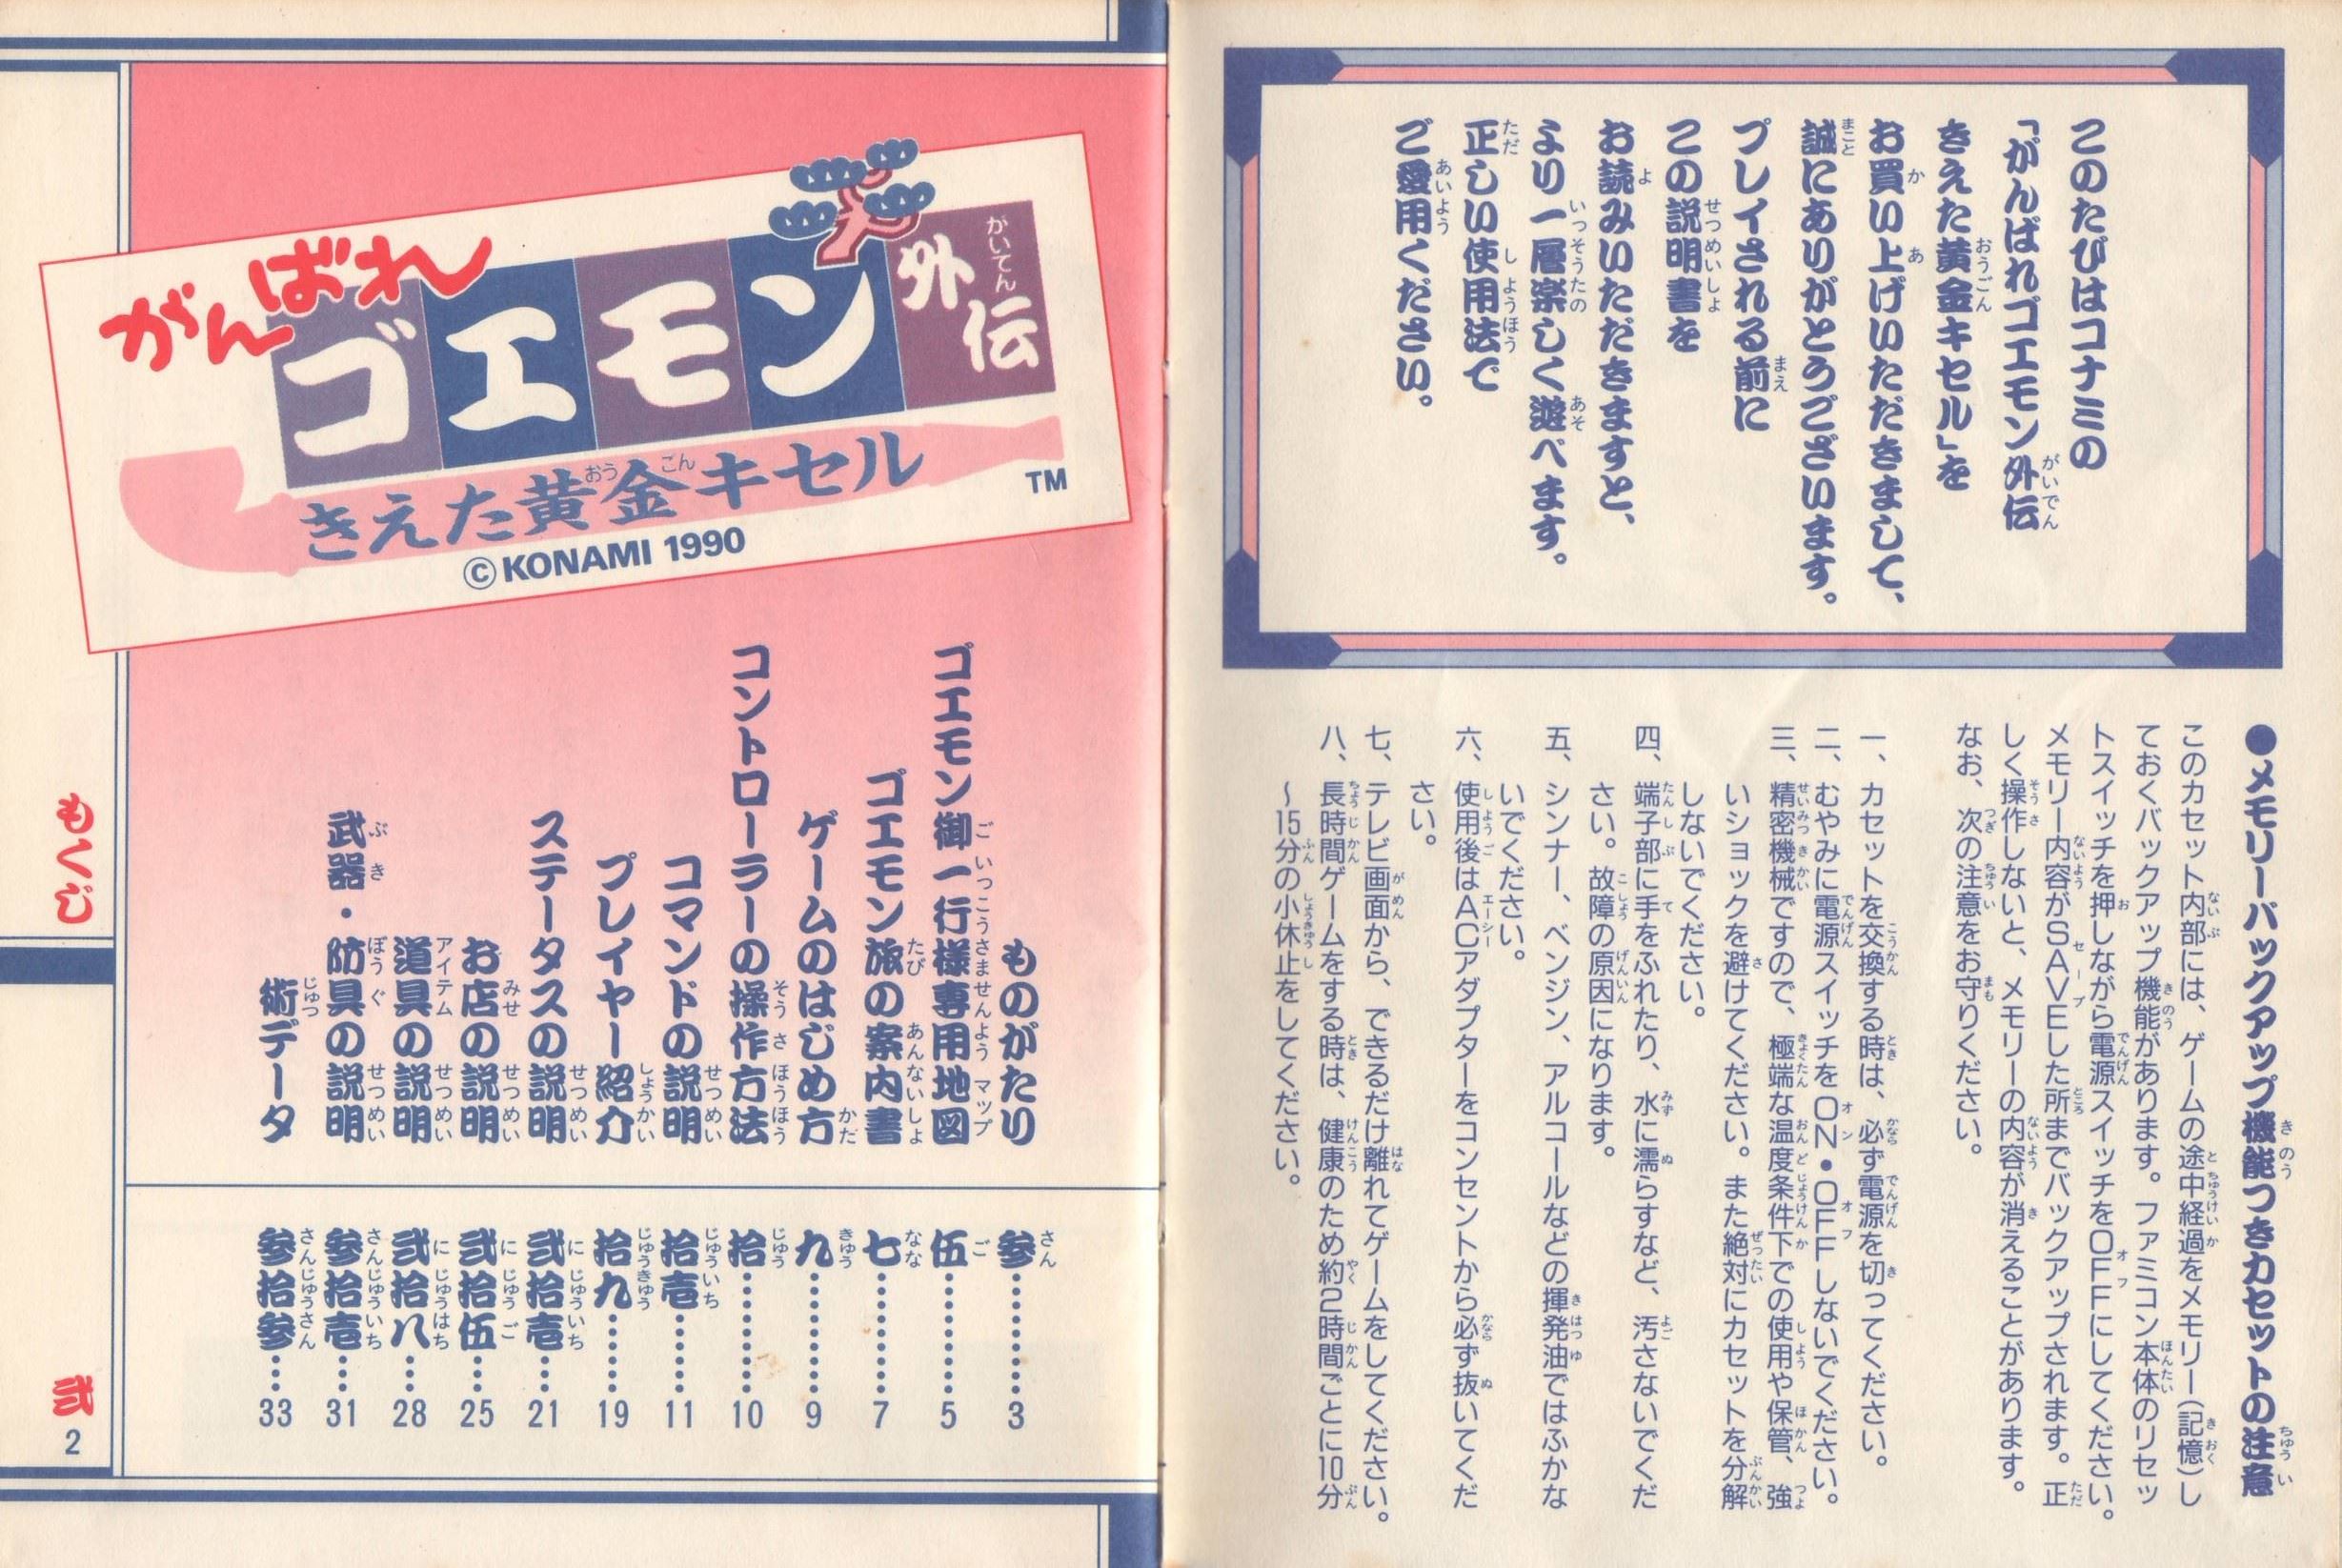 このたびはコナミの
「がんばれゴエモン外伝
きえた黄金キセル」を
お買い上げいただきまして、
誠にありがとうございます。
プレイされる前に
この説明書を
お読みいただきますと、
より一層楽しく遊べます。
正しい使用法で
ご愛用ください。
●メモリーバックアップ機能つきカセットの注意
このカセット内部には、ゲームの途中経過をメモリー(記憶)し
ておくバックアップ機能があります。ファミコン本体のリセッ
トスイッチを押しながら電源スイッチをOFFにしてください。
メモリー内容がSAVEした所までバックアップされます。正
しく操作しないと、メモリーの内容が消えることがあります。
なお、次の注意をお守りください。
一、カセットを交換する時は、必ず電源を切ってください。
二、むやみに電源スイッチをON・OFFしないでください。
三、精密機械ですので、極端な温度条件下での使用や保管、強
いショックを避けてください。また絶対にカセットを分解
しないでください。
四、端子部に手をふれたり、水に濡らすなど、汚さないでくだ
さい。故障の原因になります。
五、シンナー、ベンジン、アルコールなどの揮発油ではふかな
いでください。
六、使用後はACアダプターをコンセントから必ず抜いてくだ
さい。
七、テレビ画面から、できるだけ離れてゲームをしてください。
八、長時間ゲームをする時は、健康のため約2時間ごとに10分
〜15分の小休止をしてください。
がんばれ
ゴエモン
外伝
がいてん
きえた黄金キセル
TM
©KONAMI 1990
ものがたり 参……3
ゴエモン御一行様専用地図 伍……5
ゴエモン旅の案内書 七……7
ゲームのはじめ方 九……9
コントローラーの操作方法 拾……10
コマンドの説明 拾壱……11
プレイヤー紹介 拾九……19
ステータスの説明 弐拾壱……21
お店の説明 弐拾伍……25
道具の説明 弐拾八……28
武器・防具の説明 参拾壱……31
術データ 参拾参……33
もくじ
弐
2